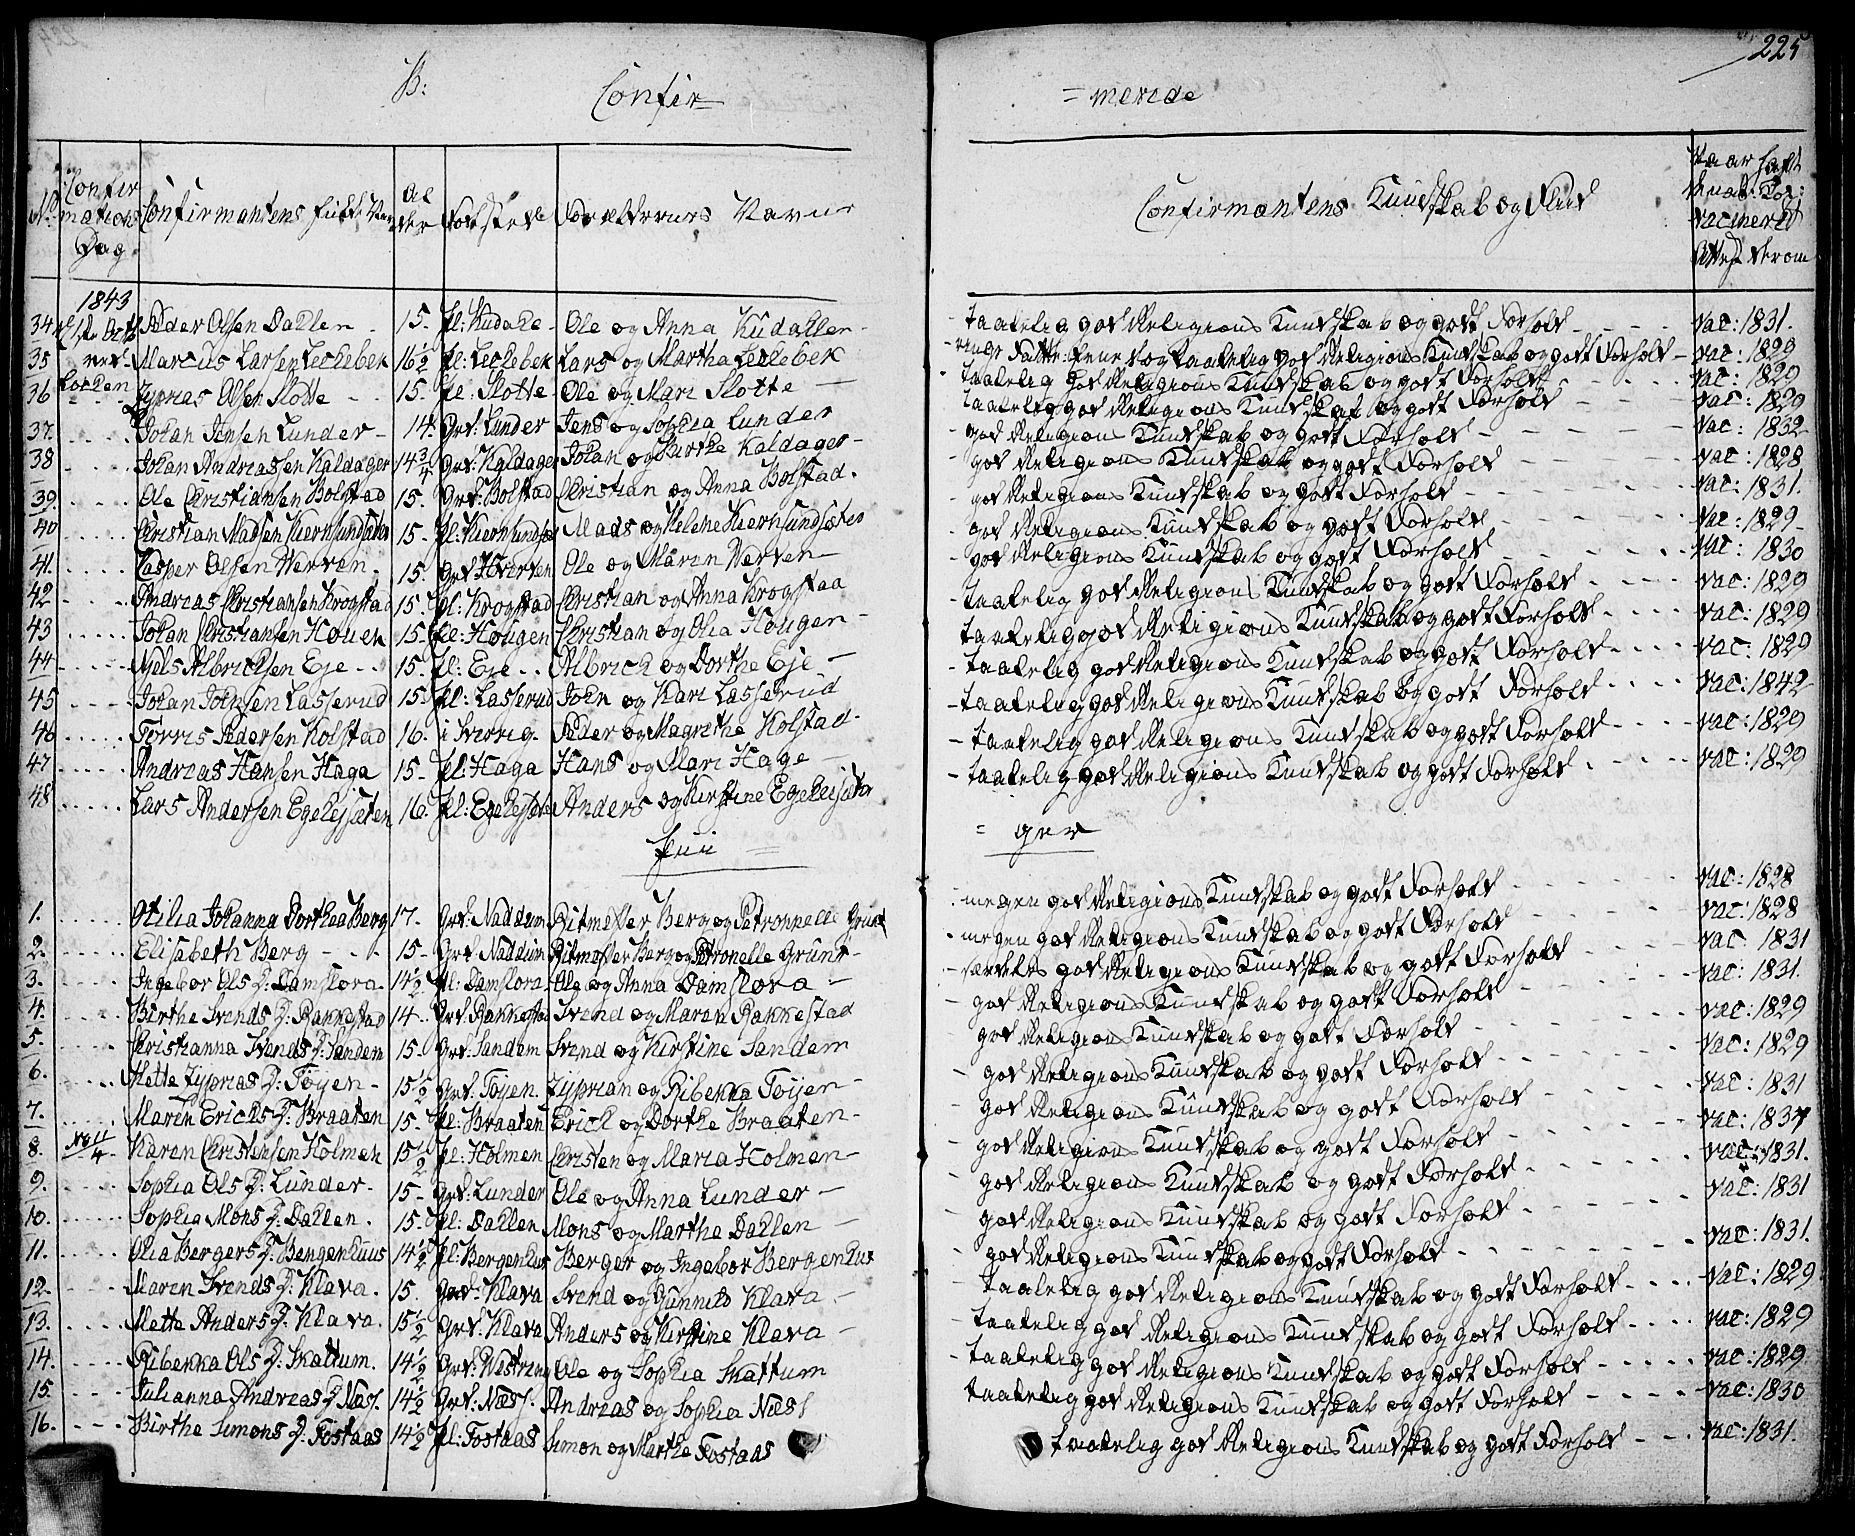 225
B:
Confir=
=merede
No
Confirmations Dag
Confirmantens fulde Navn
Alder
Fødested
Forældrenes Navne
Confirmantens Kundskab og Flid
Naar havt
naturl. Kop:
vaccinered
Attest derom
1843
34 1ste Octb Peder Olsen Dahlen 15. Pl: Kudahle Ole og Anna Kudahlen taalelig god Religions Kundskab og godt Forhold vac: 1831.
35 ved Marcus Larsen Lechebek 16½ Pl: Lechebek Lars og Martha Lechebek Fatteevne og taalelig god Religions Kundskab og godt Forhold vac: 1829
36 Kirken Zyprias Olsen Slotte 15. Pl: Slotte Ole og Mari Slotte taalelig god Religions Kundskab og godt Forhold vac: 1829
37. Johan Jensen Lunder 14. Grd: Lunder Jens og Sophia Lunder taalelig god Religions Kundskab og godt Forhold vac: 1829
38 Johan Andreassen Kaldager 14¾ Grd: Kaldager Johan og Birthe Kaldager god Religions Kundskab og godt Forhold vac: 1832
39. Ole Christiansen Bolstad 15. Grd: Bolstad Christian og Anna Bolstad. god Religions Kundskab og godt Forhold vac: 1828
40 Christian Madsen Kiernsundsæter 15. Pl: Kiernsundsæ Mads og Helene Kiernsundsæter god Religions Kundskab og godt Forhold vac: 1831.
41. Casper Olsen Werven. 15. Grd Hverven Ole og Maren Werven god Religions Kundskab og godt Forhold vac: 1829
42 Andreas Christiansen Krogstad 15. Pl: Krogstad Christian og Anna Krogstaa god Religions Kundskab og godt Forhold vac: 1830
43 Johan Christiansen Houen 15. Pl: Hougen Christian og Olia Hougen taalelig god Religions Kundskab og godt Forhold vac: 1829
44 Niels Albrichsen Eje 15. Pl: Eje Albrich og Dorthe Eje taalelig god Religions Kundskab og godt Forhold vac: 1829
45 Johan Johnsen Lasserud 15. Pl: Lasserud John og Kari Lasserud taalelig god Religions Kundskab og godt Forhold vac: 1829
46 Torris Pedersen Kolstad 16. i Sverrig. Peder og Magrethe Kolstad taalelig god Religions Kundskab og godt Forhold vac: 1842
47 Andreas Hansen Haga 15. Pl: Haga Hans og Mari Hage taalelig god Religions Kundskab og godt Forhold vac: 1829
48 Lars Andersen Egelejsæten 16. Pl: Egelejsæte Anders og Kirstine Egelejsæter taalelig god Religions Kundskab og godt Forhold vac: 1829
Pii=
=ger
1. Otilia Johanna Dorthea Berg 17. Grd: Naddum Ritmester Berg og Petronnelle Grünt megen god Religions Kundskab og godt Forhold vac: 1828
2. Elisabeth Berg 15. Grd: Naddum Ritmester Berg og Petronelle Grünt megen god Religions Kundskab og godt Forhold vac: 1828
3. Ingebor Ols D: Damslora 14½ Pl: Damslora Ole og Anna Damslora særdeles god Religions Kundskab og godt Forhold vac: 1831
4. Birthe Svends D: Rakkestad 14. Grd: Rakkestad Svend og Maren Rakkestad god Religions Kundskab og godt Forhold vac: 1831.
5. Christianna Svends D: Sandem 15. Grd: Sandem Svend og Kirstine Sandem god Religions Kundskab og godt Forhold vac: 1829
6. Mette Zyprias D: Tøjen 15½ Grd: Tøjen. Zyprian og Ribekka Tøjen god Religions Kundskab og godt Forhold vac: 1829
7. Maren Erichs D: Braaten 15. Pl: Braaten Erich og Dorthe Braaten god Religions Kundskab og godt Forhold vac: 1831
8. No 11/4 Karen Christensen Holmen 15½ Pl: Holmen Christen og Maria Holmen god Religions Kundskab og godt Forhold vac: 1837
9. Sophia Ols D: Lunder 15. Grd: Lunder Ole og Anna Lunder god Religions Kundskab og godt Forhold vac: 1831.
10. Sophia Mons D: Dahlen. 15. Pl: Dahlen Mons og Marthe Dahlen god Religions Kundskab og godt Forhold vac: 1831
11. Olia Bergers D: Bergenhuus 14½ Pl: Bergenhus Berger og Ingebor Bergenhus god Religions Kundskab og godt Forhold vac: 1831.
12. Maren Svends D: Klava. 15. Grd: Klava Svend og Gunnild Klava taalelig god Religions Kundskab og godt Forhold vac: 1829
13. Mette Anders D: Klava. 15½ Grd: Klava Anders og Kirstine Klava taalelig god Religions Kundskab og godt Forhold vac: 1829
14. Ribekka Ols D: Skattum. 14½ Grd: Ole og Sophia Skattum taalelig god Religions Kundskab og godt Forhold vac: 1829
15. Julianna Andreas D: Næss. 14½ Grd: Næss. Andreas og Sophia Næss taalelig god Religions Kundskab og godt Forhold vac: 1830
16. Birthe Simons D: Fostaas 14½ Pl: Fostaas Simon og Marthe Fostaas taalelig god Religions Kundskab og godt Forhold vac: 1831.